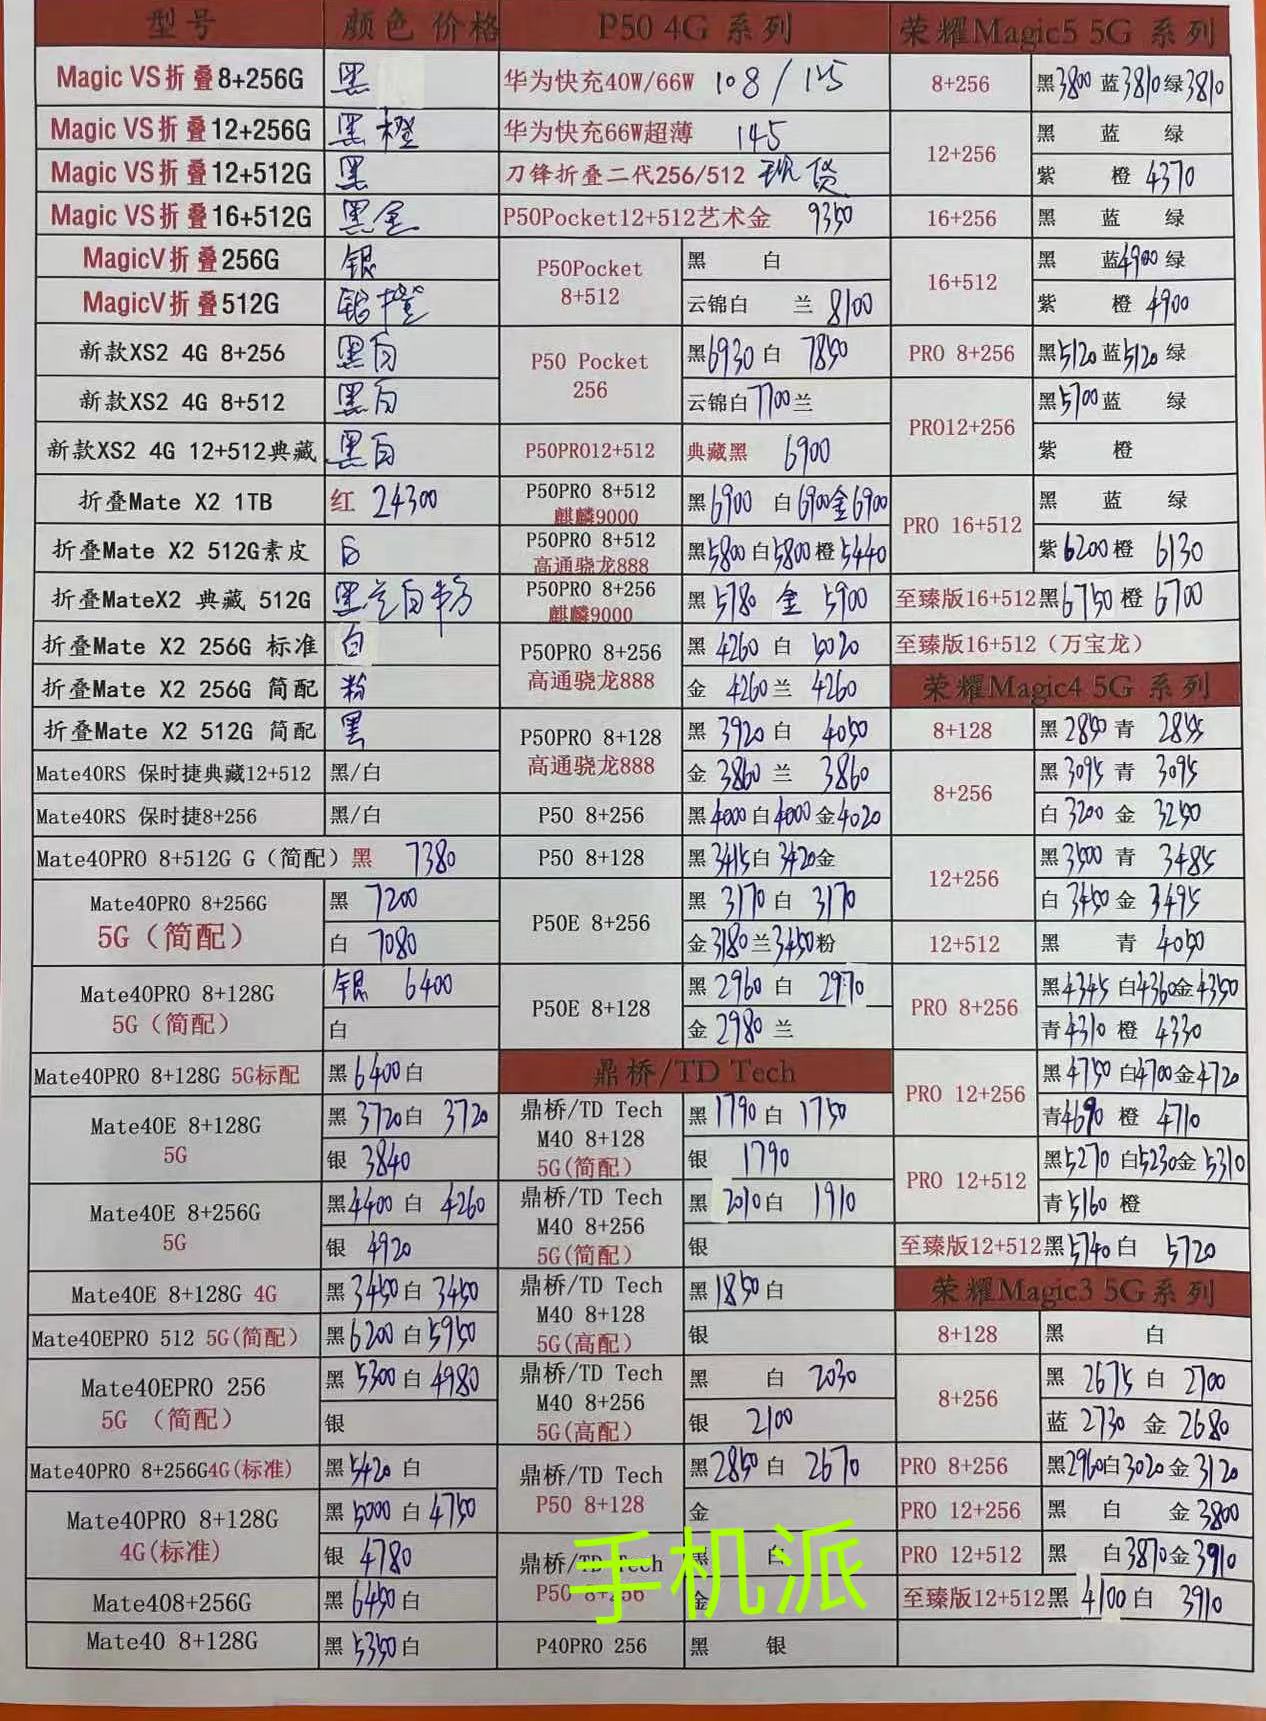 型号 颜色 价格
Magic VS折叠8+256G 黑
Magic VS折叠12+256G 黑 橙
Magic VS折叠12+512G 黑
Magic VS折叠16+512G 黑金
MagicV折叠256G 银
MagicV折叠512G 银橙
新款XS2 4G 8+256 黑白
新款XS2 4G 8+512 黑白
新款XS2 4G 12+512典藏 黑白
折叠Mate X2 1TB 红 24300
折叠Mate X2 512G素皮 白
折叠MateX2 典藏 512G 黑兰白粉
折叠Mate X2 256G 标准 白
折叠Mate X2 256G 简配 粉
折叠Mate X2 512G 简配 黑
Mate40RS 保时捷典藏12+512 黑/白
Mate40RS 保时捷8+256 黑/白
Mate40PRO 8+512G G（简配）黑 7380
Mate40PRO 8+256G
5G（简配）
黑 7200
白 7080
Mate40PRO 8+128G
5G（简配）
银 6400
白
Mate40PRO 8+128G 5G标配 黑6400白
Mate40E 8+128G
5G
黑 3720白 3720
银 3840
Mate40E 8+256G
5G
黑4400 白 4260
银 4920
Mate40E 8+128G 4G 黑3450白 3450
Mate40EPRO 512 5G(简配） 黑6200白5950
Mate40EPRO 256
5G （简配）
黑 5300白 4980
银
Mate40PRO 8+256G4G(标准） 黑5420 白
Mate40PRO 8+128G
4G(标准）
黑 5000 白 4750
银 4780
Mate408+256G 黑 6450白
Mate40 8+128G 黑 5350白
P50 4G 系列
华为快充40W/66W 108/125
华为快充66W超薄 145
刀锋折叠二代256/512 现货
P50Pocket12+512艺术金 9350
P50Pocket
8+512
黑 白
云锦白 兰 8100
P50 Pocket
256
黑6930 白 7850
云锦白7700兰
P50PRO12+512 典藏黑 6900
P50PRO 8+512
麒麟9000
黑6900 白6900金6900
P50PRO 8+512
高通骁龙888
黑5800白5800橙5440
P50PRO 8+256
麒麟9000
黑 5780 金 5900
P50PRO 8+256
高通骁龙888
黑 4260 白 5020
金 4260兰 4260
P50PRO 8+128
高通骁龙888
黑 3920白 4050
金 3860 兰 3860
P50 8+256 黑4000白4000金4020
P50 8+128 黑3415白3420金
P50E 8+256
黑 3170白 3170
金3180兰3450粉
P50E 8+128
黑2960 白 2970
金 2980 兰
鼎桥/TD Tech
鼎桥/TD Tech
M40 8+128
5G(简配）
黑1790白 1750
银 1790
鼎桥/TD Tech
M40 8+256
5G(简配）
黑 2010白 1910
银
鼎桥/TD Tech
M40 8+128
5G(高配）
黑1850白
银
鼎桥/TD Tech
M40 8+256
5G(高配）
黑 白 2030
银 2100
鼎桥/TD Tech
P50 8+128
黑2850白 2670
金
鼎桥/TD Tech
P50 8+256
黑 白
金
手机派
P40PRO 256 黑 银
荣耀Magic5 5G 系列
8+256 黑3800 蓝3810绿3810
12+256
黑 蓝 绿
紫 橙 4370
16+256 黑 蓝 绿
16+512
黑 蓝4900绿
紫 橙 4900
PRO 8+256 黑5120蓝5120绿
PRO12+256
黑5700蓝 绿
紫 橙
PRO 16+512
黑 蓝 绿
紫6200橙 6130
至臻版16+512黑6750橙 6700
至臻版16+512（万宝龙）
荣耀Magic4 5G 系列
8+128 黑2850青 2855
8+256
黑3095青 3095
白3200金 3250
12+256
黑3500青 3485
白3450金 3495
12+512 黑 青 4050
PRO 8+256
黑4345 白4360金4350
青4310 橙 4330
PRO 12+256
黑4750白4700金4720
青4690 橙 4710
PRO 12+512
黑5270 白5230金5310
青5160 橙
至臻版12+512黑5740白 5720
荣耀Magic3 5G系列
8+128 黑 白
8+256
黑 2675 白 2700
蓝 2730 金 2680
PRO 8+256 黑2960白3020金3120
PRO 12+256 黑 白 金 3800
PRO 12+512 黑 白3870金3910
至臻版12+512黑 4100白 3910